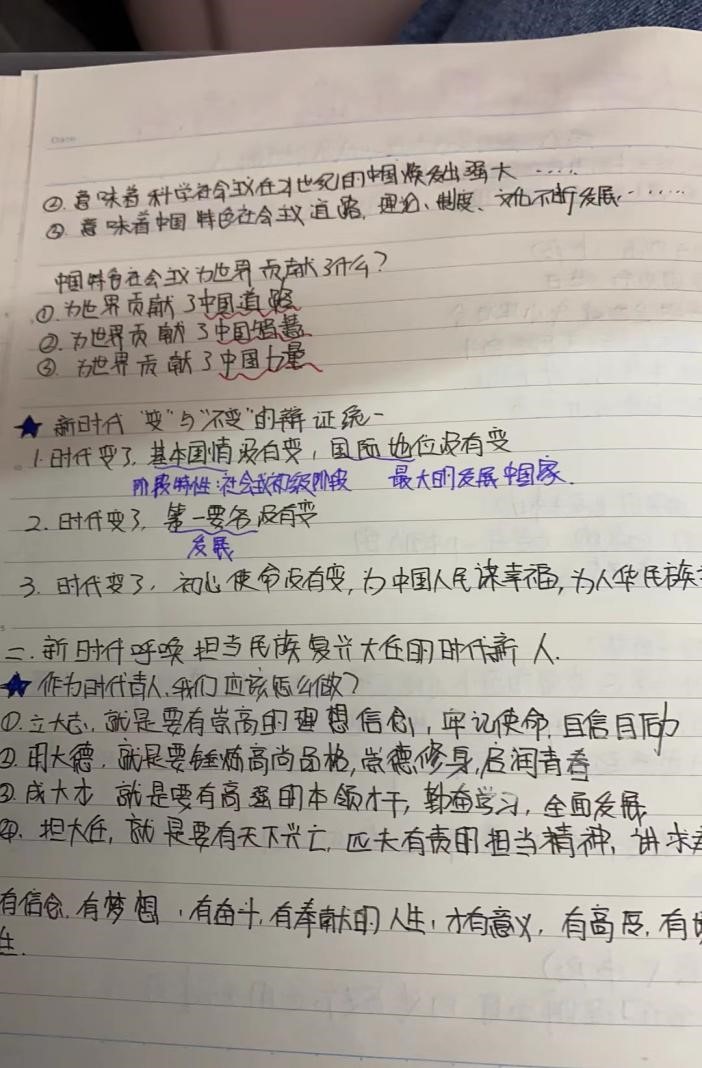 ②. 意味着科学社会主义在21世纪的中国焕发出强大······
③. 意味着中国特色社会主义道路、理论、制度、文化不断发展······
中国特色社会主义为世界贡献了什么?
①. 为世界贡献了中国道路
②. 为世界贡献了中国智慧
③. 为世界贡献了中国力量
★ 新时代"变"与"不变"的辩证统一
1. 时代变了, 基本国情没有变, 国际地位没有变
阶段特性:社会主义初级阶段 最大的发展中国家.
2. 时代变了, 第一要务没有变
发展
3. 时代变了, 初心使命没有变, 为中国人民谋幸福, 为人华民族
二. 新时代呼唤担当民族复兴大任的时代新人.
★ 作为时代青人, 我们应该怎么做?
①. 立大志, 就是要有崇高的理想信念, 牢记使命, 自信自励
②. 明大德, 就是要锤炼高尚品格, 崇德修身, 启润青春
③. 成大才 就是要有高强的本领才干, 勤奋学习, 全面发展
④. 担大任, 就是要有天下兴亡, 匹夫有责的担当精神, 讲求
有信念, 有梦想, 有奋斗, 有奉献的人生, 才有意义, 有高度, 有
生.